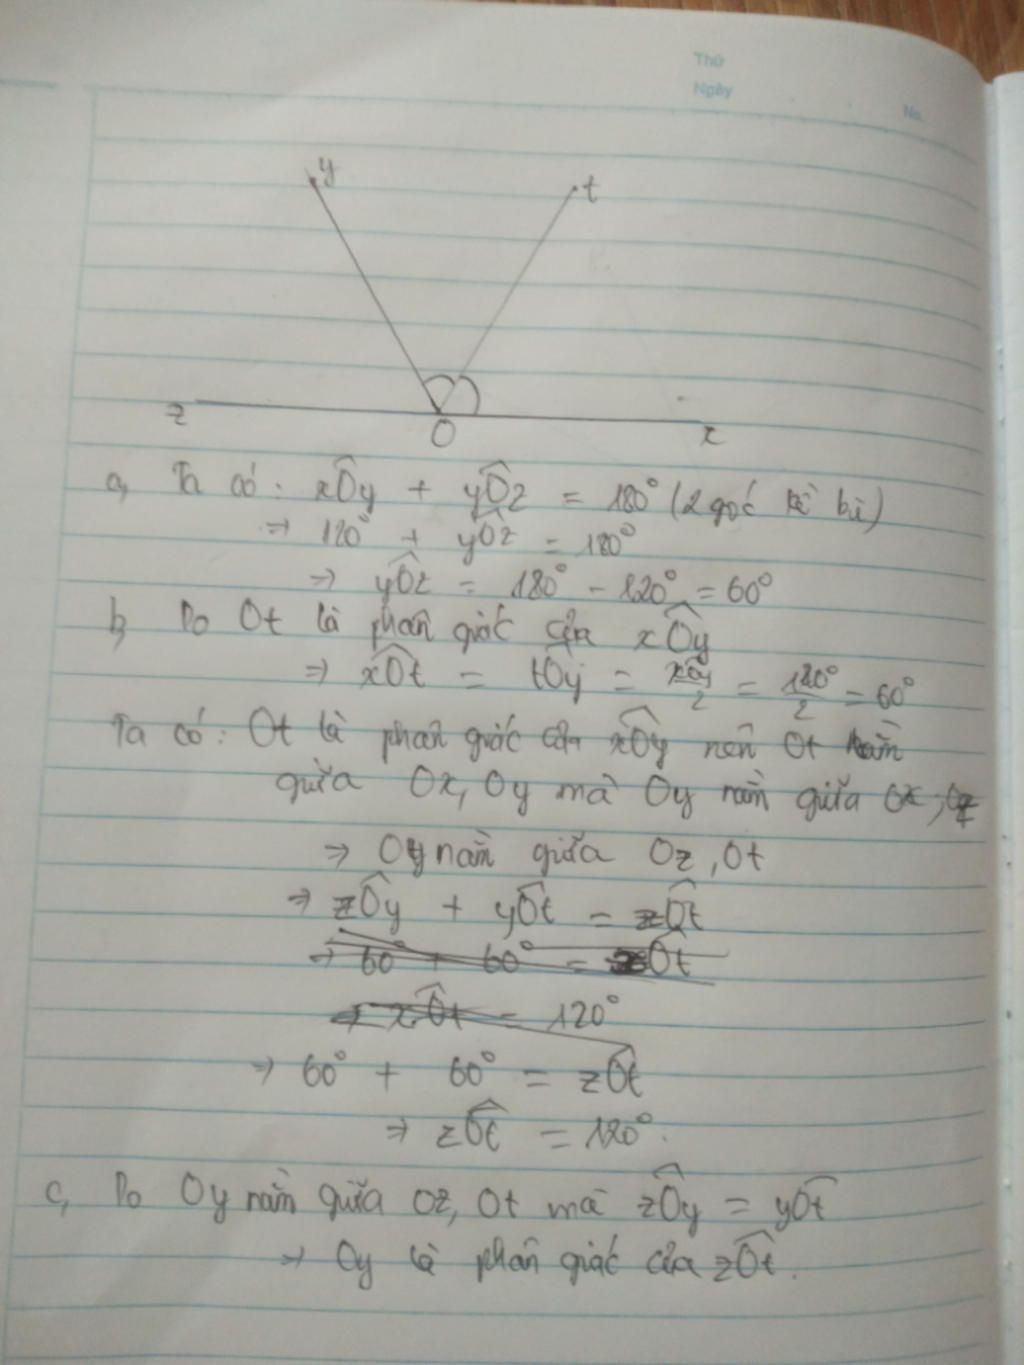 Thứ
Ngày
No.
y
t
z
O
x
a, Ta có: xÔy + yÔz = 180° (2 góc kề bù)
=> 120° + yÔz = 180°
=> yÔz = 180° - 120° = 60°
b, Do Ot là phân giác của xÔy
=> xÔt = tÔy = xÔy/2 = 120°/2 = 60°
Ta có: Ot là phân giác của xÔy nên Ot nằm
giữa Ox, Oy mà Oy nằm giữa Ox; Oz
=> Oy nằm giữa Oz, Ot
=> zÔy + yÔt = zÔt
=> 60° + 60° = Ôt
xÔt = 120°
=> 60° + 60° = zÔt
=> zÔt = 120°.
c, Do Oy nằm giữa Oz, Ot mà zÔy = yÔt
=> Oy là phân giác của zÔt.